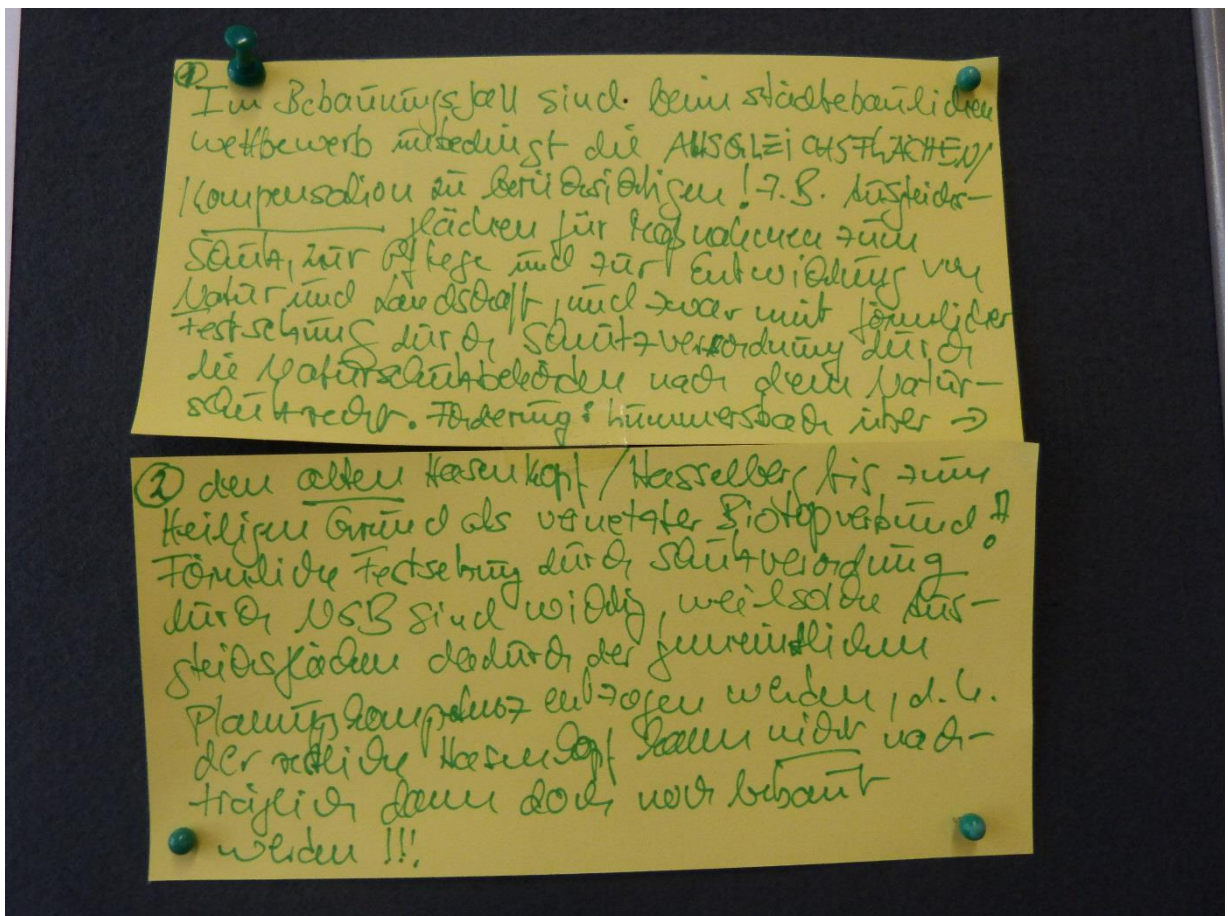 ① Im Bebauungsfall sind beim städtebaulichen
Wettbewerb unbedingt die AUSGLEICHSFLÄCHEN/
Kompensation zu berücksichtigen! z.B. Ausgleichs-
flächen für Maßnahmen zum
Schutz, zur Pflege und zur Entwicklung von
Natur und Landschaft, und zwar mit förmlicher
Festsetzung durch Schutzverordnung durch
die Naturschutzbehörden nach dem Natur-
schutzrecht. Forderung: Lummersbach über →
② den alten Hasenkopf / Hasselberg bis zum
Heiligen Grund als vernetzter Biotopverbund!
Förmliche Festsetzung durch Schutzverordnung
durch NSB sind wichtig, weil solche Aus-
gleichsflächen dadurch der gemeindlichen
Planungskompetenz entzogen werden, d.h.
der restliche Hasenkopf kann nicht nach-
träglich dann doch noch bebaut
werden!!!